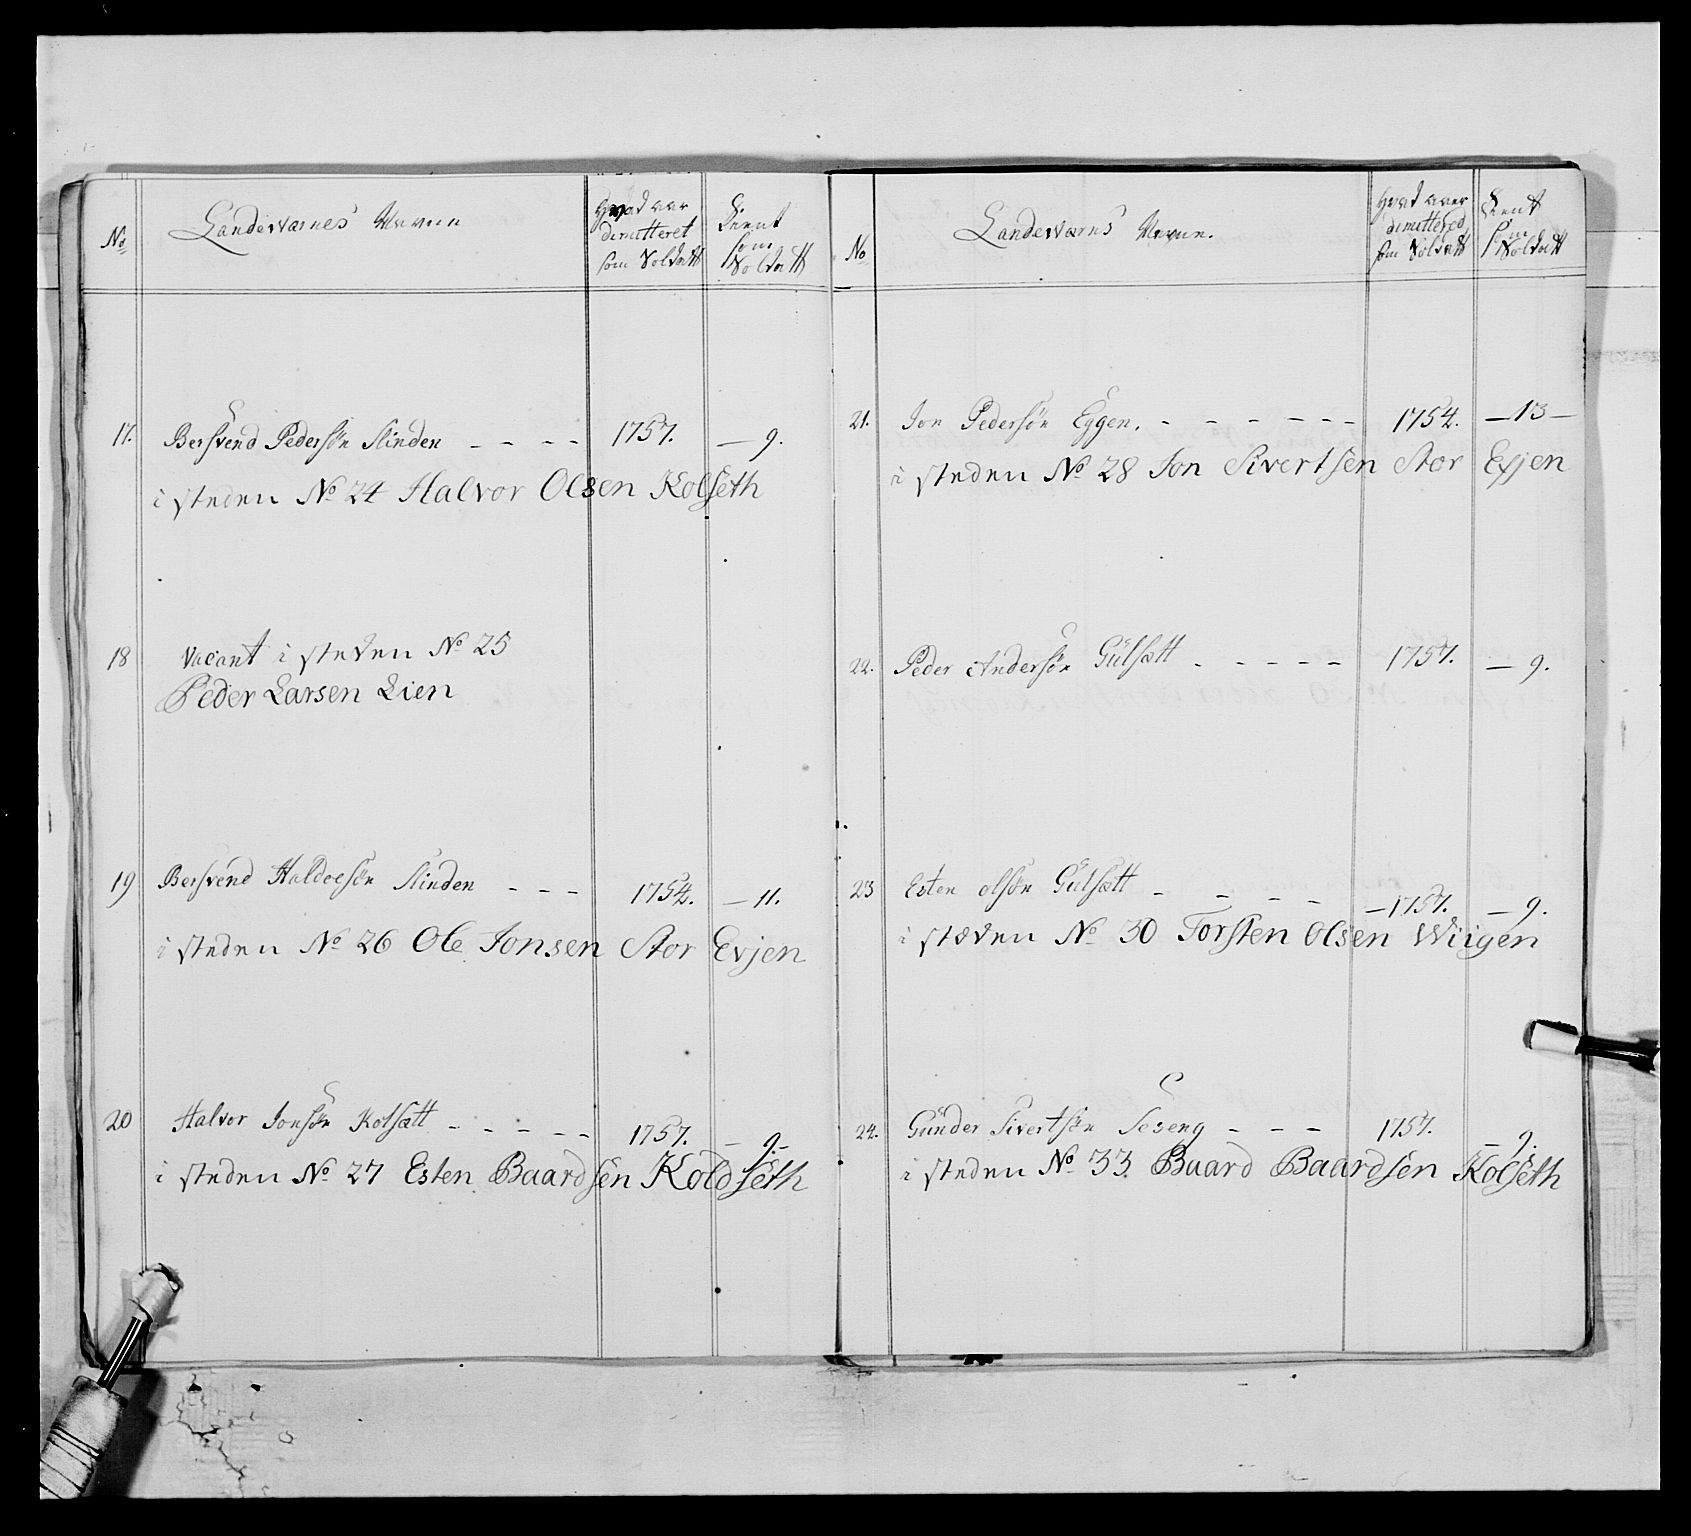 No
Landeværnes Navne
Hvad aar
dimitteret
som Soldatt
Tient
som
Soldatt
17. Bersvend Pedersøn Slinden - - - - 1757. - 9.
i steden No 24 Halvor Olsen Kolseth
18 Vacant i steden No 25
Peder Larsen Lien
19 Bersvend Haldoesøn Slinden - - - 1754. - 11.
i steden No 26 Ole Jonsen Stor Evjen
20 Halvor Jonsøn Kolsætt - - - - - 1757. - 9.
i steden No 27 Esten Baardsen Koldseth
No
Landeværns Navne.
Hvad aar
dimittered
som Soldatt
Tient
som
Soldatt
21. Jon Pedersøn Eggen. - - - - - - 1754. - 13 -
i steden No 28 Jon Sivertsen Stor Evjen
22. Peder Andersøn Gülsætt - - - - - 1757. - 9.
23 Esten olsøn Gülsætt - - - - - 1757. - 9.
i stæden No 30 Torsten Olsen Wiigen
24. Günder Sivertsøn Seseng - - - 1757. - 9.
i steden No 33 Baard Baardsen Kolseth